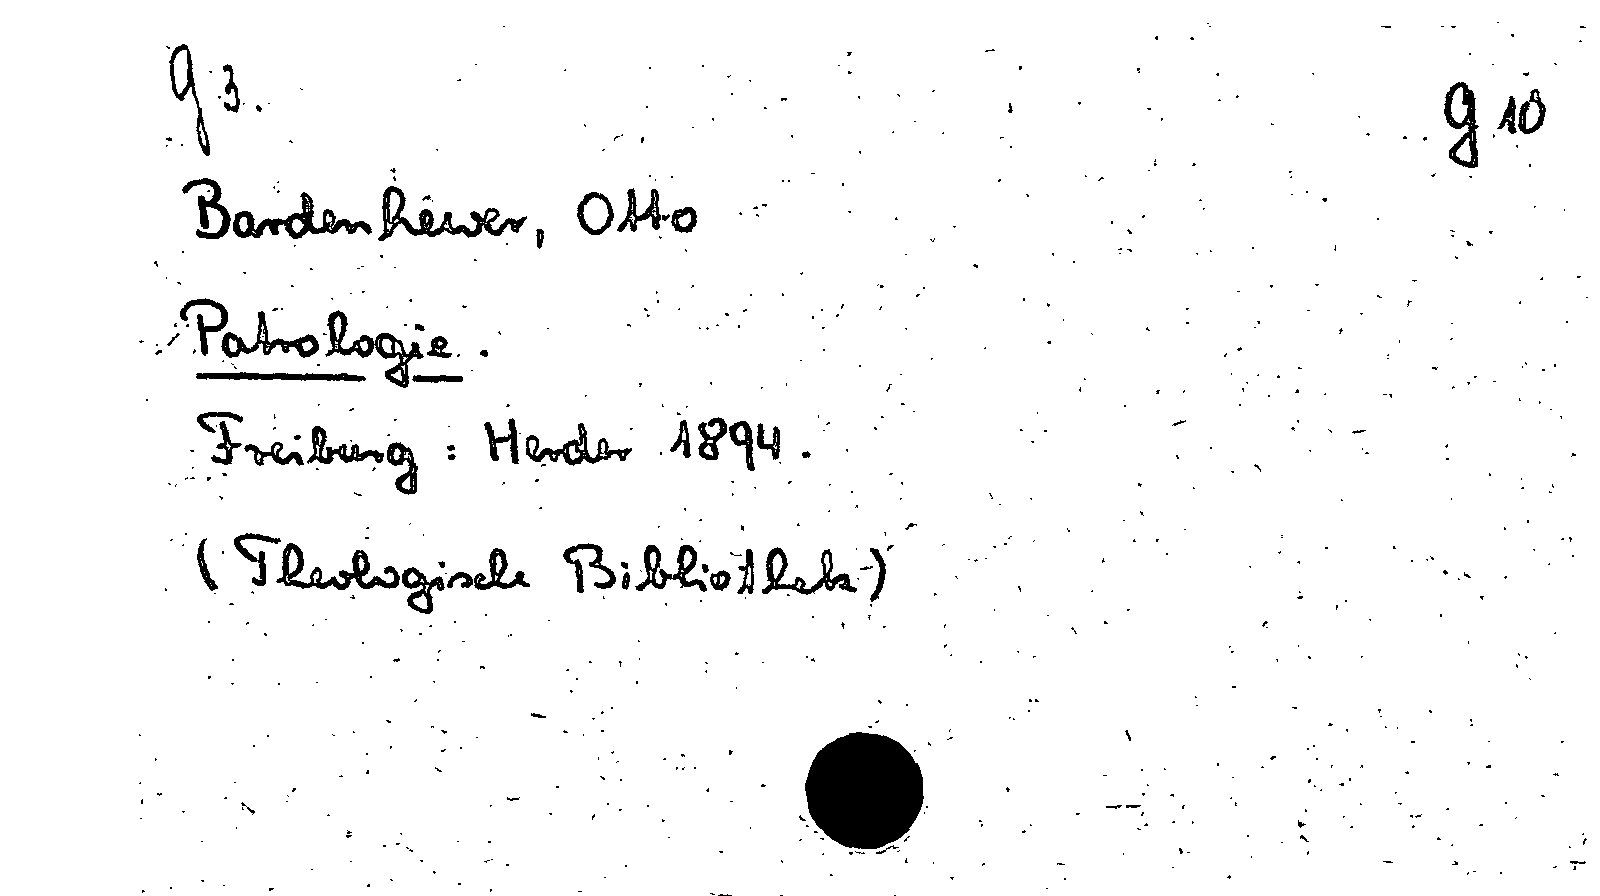 g 3.
g 10
Bardenhewer, Otto
Patrologie.
Freiburg : Herder 1894.
(Theologische Bibliothek)